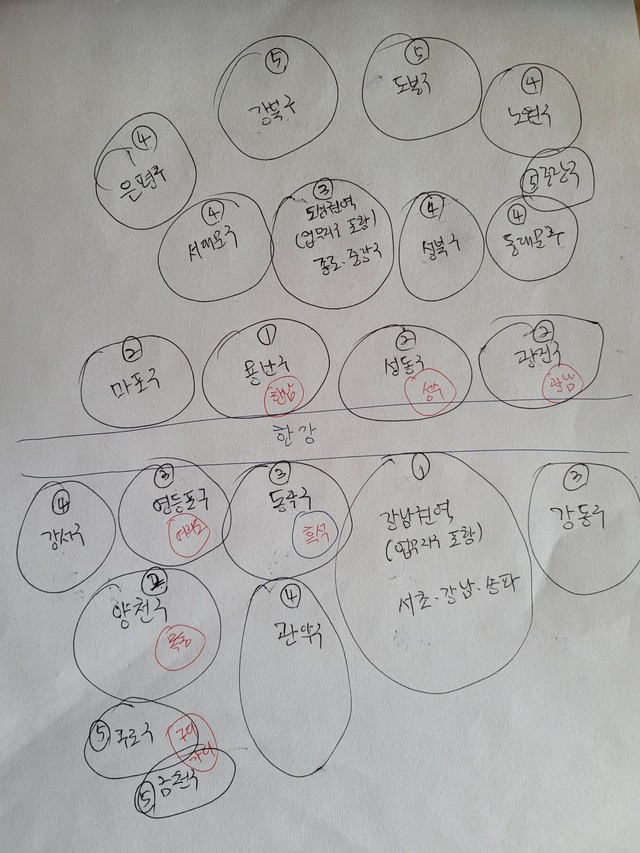 ⑤
강북구
⑤
도봉구
④
노원구
④
은평구
⑤ 중랑구
④
서대문구
③
도심권역
(업무지구 포함)
종로·중구
④
성북구
④
동대문구
②
마포구
①
용산구
한남
②
성동구
성수
②
광진구
한강
④
강서구
③
영등포구
여의도
③
동작구
흑석
①
강남권역
(업무지구 포함)
서초·강남·송파
③
강동구
②
양천구
목동
④
관악구
⑤ 구로구
구디
가디
⑤ 금천구